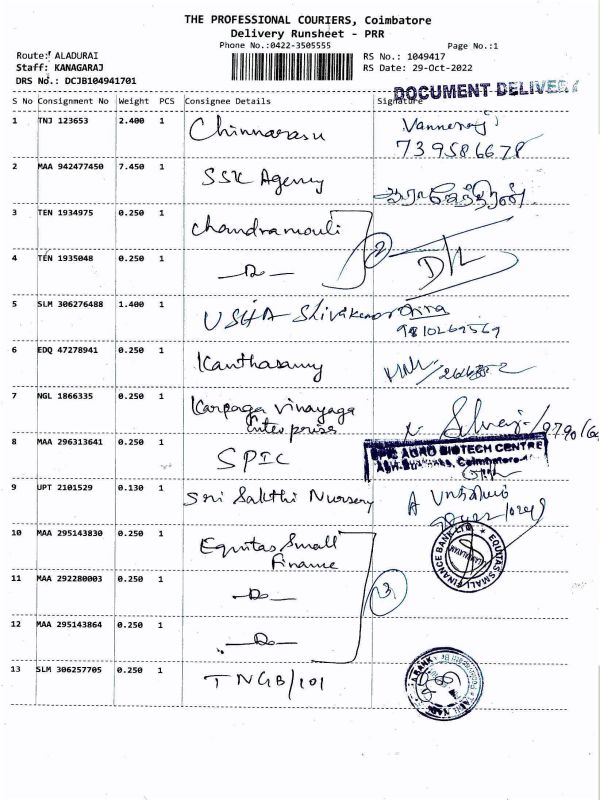 THE PROFESSIONAL COURIERS, Coimbatore
Delivery Runsheet - PRR
Phone No.:0422-3505555
Page No.:1
Route: ALADURAI
RS No.: 1049417
Staff: KANAGARAJ
RS Date: 29-Oct-2022
DRS No.: DCJB104941701
DOCUMENT DELIVERY
S No Consignment No Weight PCS Consignee Details Signature
1 TNJ 123653 2.400 1 Chinnarasu
739586678
2 MAA 942477450 7.450 1 SSK Agency
3 TEN 1934975 0.250 1 Chandramouli
2
4 TEN 1935048 0.250 1 -Do-
5 SLM 306276488 1.400 1 USHA Shivakumar
9810269569
6 EDQ 47278941 0.250 1 Kanthasamy
7 NGL 1866335 0.250 1 Karpaga Vinayaga
Enterprises
8 MAA 296313641 0.250 1 SPIC
SPIC AGRO BIOTECH CENTRE
Coimbatore
9 UPT 2101529 0.130 1 Sri Sakthi Nursery
10 MAA 295143830 0.250 1 Equitas Small
Finance
EQUITAS SMALL FINANCE BANK LTD
11 MAA 292280003 0.250 1 -Do-
3
12 MAA 295143864 0.250 1 -Do-
13 SLM 306257705 0.250 1 TNGB/101